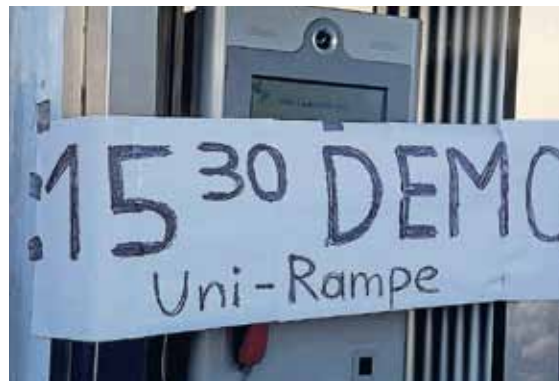 15³⁰ DEMO
Uni-Rampe